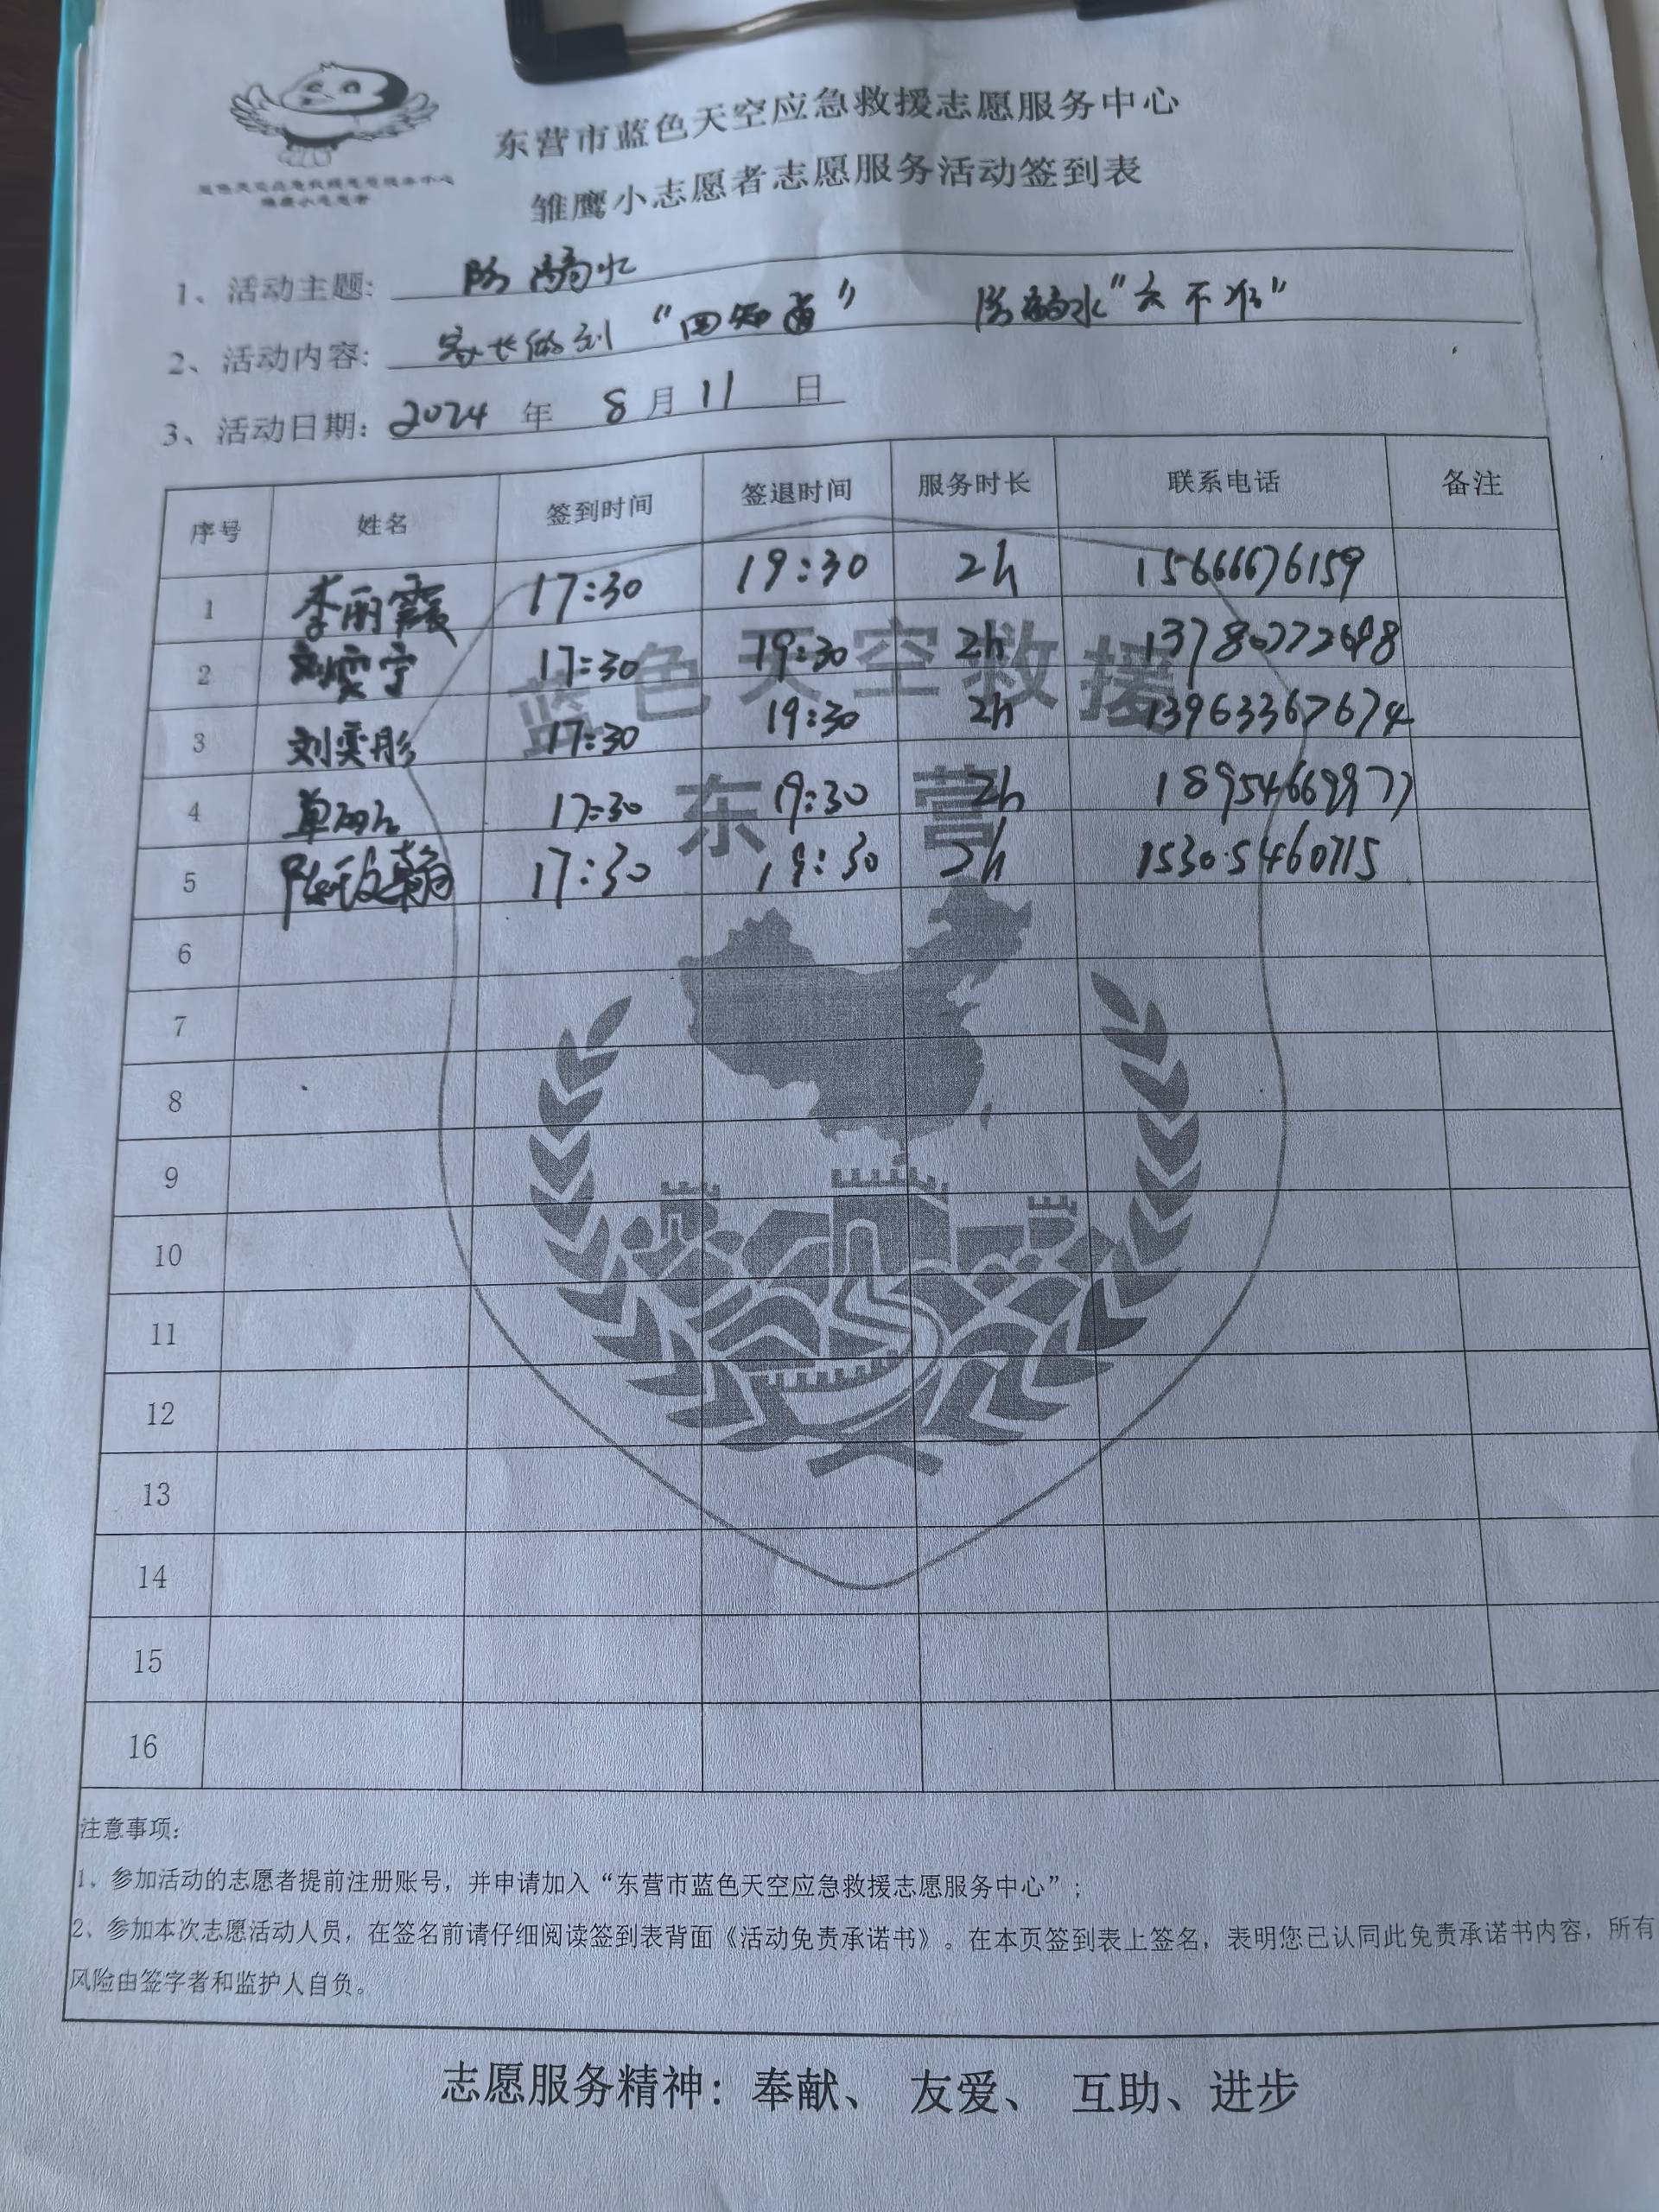 东营市蓝色天空应急救援志愿服务中心
雏鹰小志愿者志愿服务活动签到表
蓝色天空应急救援志愿服务中心
雏鹰小志愿者
1、活动主题: 防溺水
2、活动内容: 家长做到“四知道” 防溺水“六不准”
3、活动日期: 2024 年 8 月 11 日
序号 姓名 签到时间 签退时间 服务时长 联系电话 备注
1 李丽霞 17:30 19:30 2h 15666676159
2 刘雯宁 17:30 19:30 2h 13780772698
3 刘奕彤 17:30 19:30 2h 13963367674
4 单 17:30 19:30 2h 18954669977
5 17:30 19:30 2h 15305460715
6
7
8
9
10
11
12
13
14
15
16
蓝色天空救援
东营
注意事项:
1、参加活动的志愿者提前注册账号，并申请加入“东营市蓝色天空应急救援志愿服务中心”;
2、参加本次志愿活动人员，在签名前请仔细阅读签到表背面《活动免责承诺书》。在本页签到表上签名，表明您已认同此免责承诺书内容，所有
风险由签字者和监护人自负。
志愿服务精神: 奉献、 友爱、 互助、进步